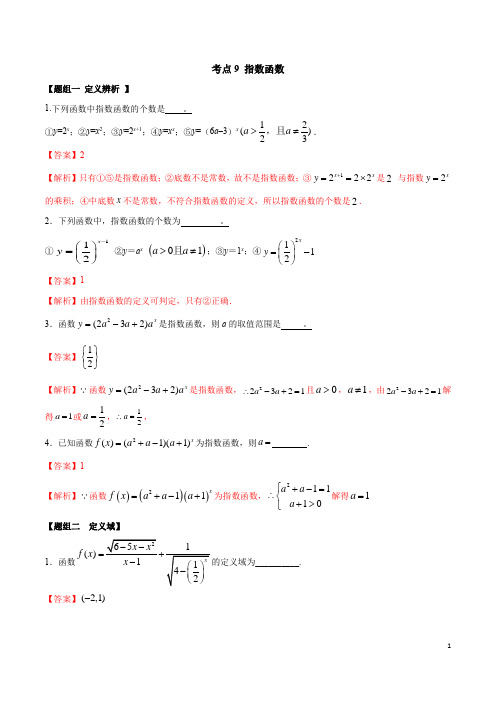 考点9 指数函数
【题组一 定义辨析 】
1.下列函数中指数函数的个数是 。
①y=2ˣ；②y=x²；③y=2ˣ⁺¹；④y=xˣ；⑤y=（6a–3）ˣ (a > 1/2，且a ≠ 2/3)．
【答案】2
【解析】只有①⑤是指数函数；②底数不是常数，故不是指数函数；③ y = 2ˣ⁺¹ = 2 × 2ˣ 是 2 与指数 y = 2ˣ
的乘积；④中底数 x 不是常数，不符合指数函数的定义，所以指数函数的个数是 2．
2．下列函数中，指数函数的个数为 。
① y = (1/2)ˣ⁻¹ ②y＝aˣ (a > 0且a ≠ 1)；③y＝1ˣ；④ y = (1/2)²ˣ − 1
【答案】1
【解析】由指数函数的定义可判定，只有②正确．
3．函数 y = (2a² − 3a + 2)aˣ 是指数函数，则 a 的取值范围是 。
【答案】{1/2}
【解析】∵函数 y = (2a² − 3a + 2)aˣ 是指数函数，∴2a² − 3a + 2 = 1 且 a > 0，a ≠ 1，由 2a² − 3a + 2 = 1 解
得 a = 1 或 a = 1/2，∴a = 1/2，
4．已知函数 f(x) = (a² + a − 1)(a + 1)ˣ 为指数函数，则 a = ________.
【答案】1
【解析】∵函数 f(x) = (a² + a − 1)(a + 1)ˣ 为指数函数，∴{a² + a − 1 = 1 a + 1 > 0 解得 a = 1
【题组二 定义域】
1．函数 f(x) = √(6 − 5x − x²)/(x − 1) + 1/√(4 − (1/2)ˣ) 的定义域为__________.
【答案】(−2,1)
1